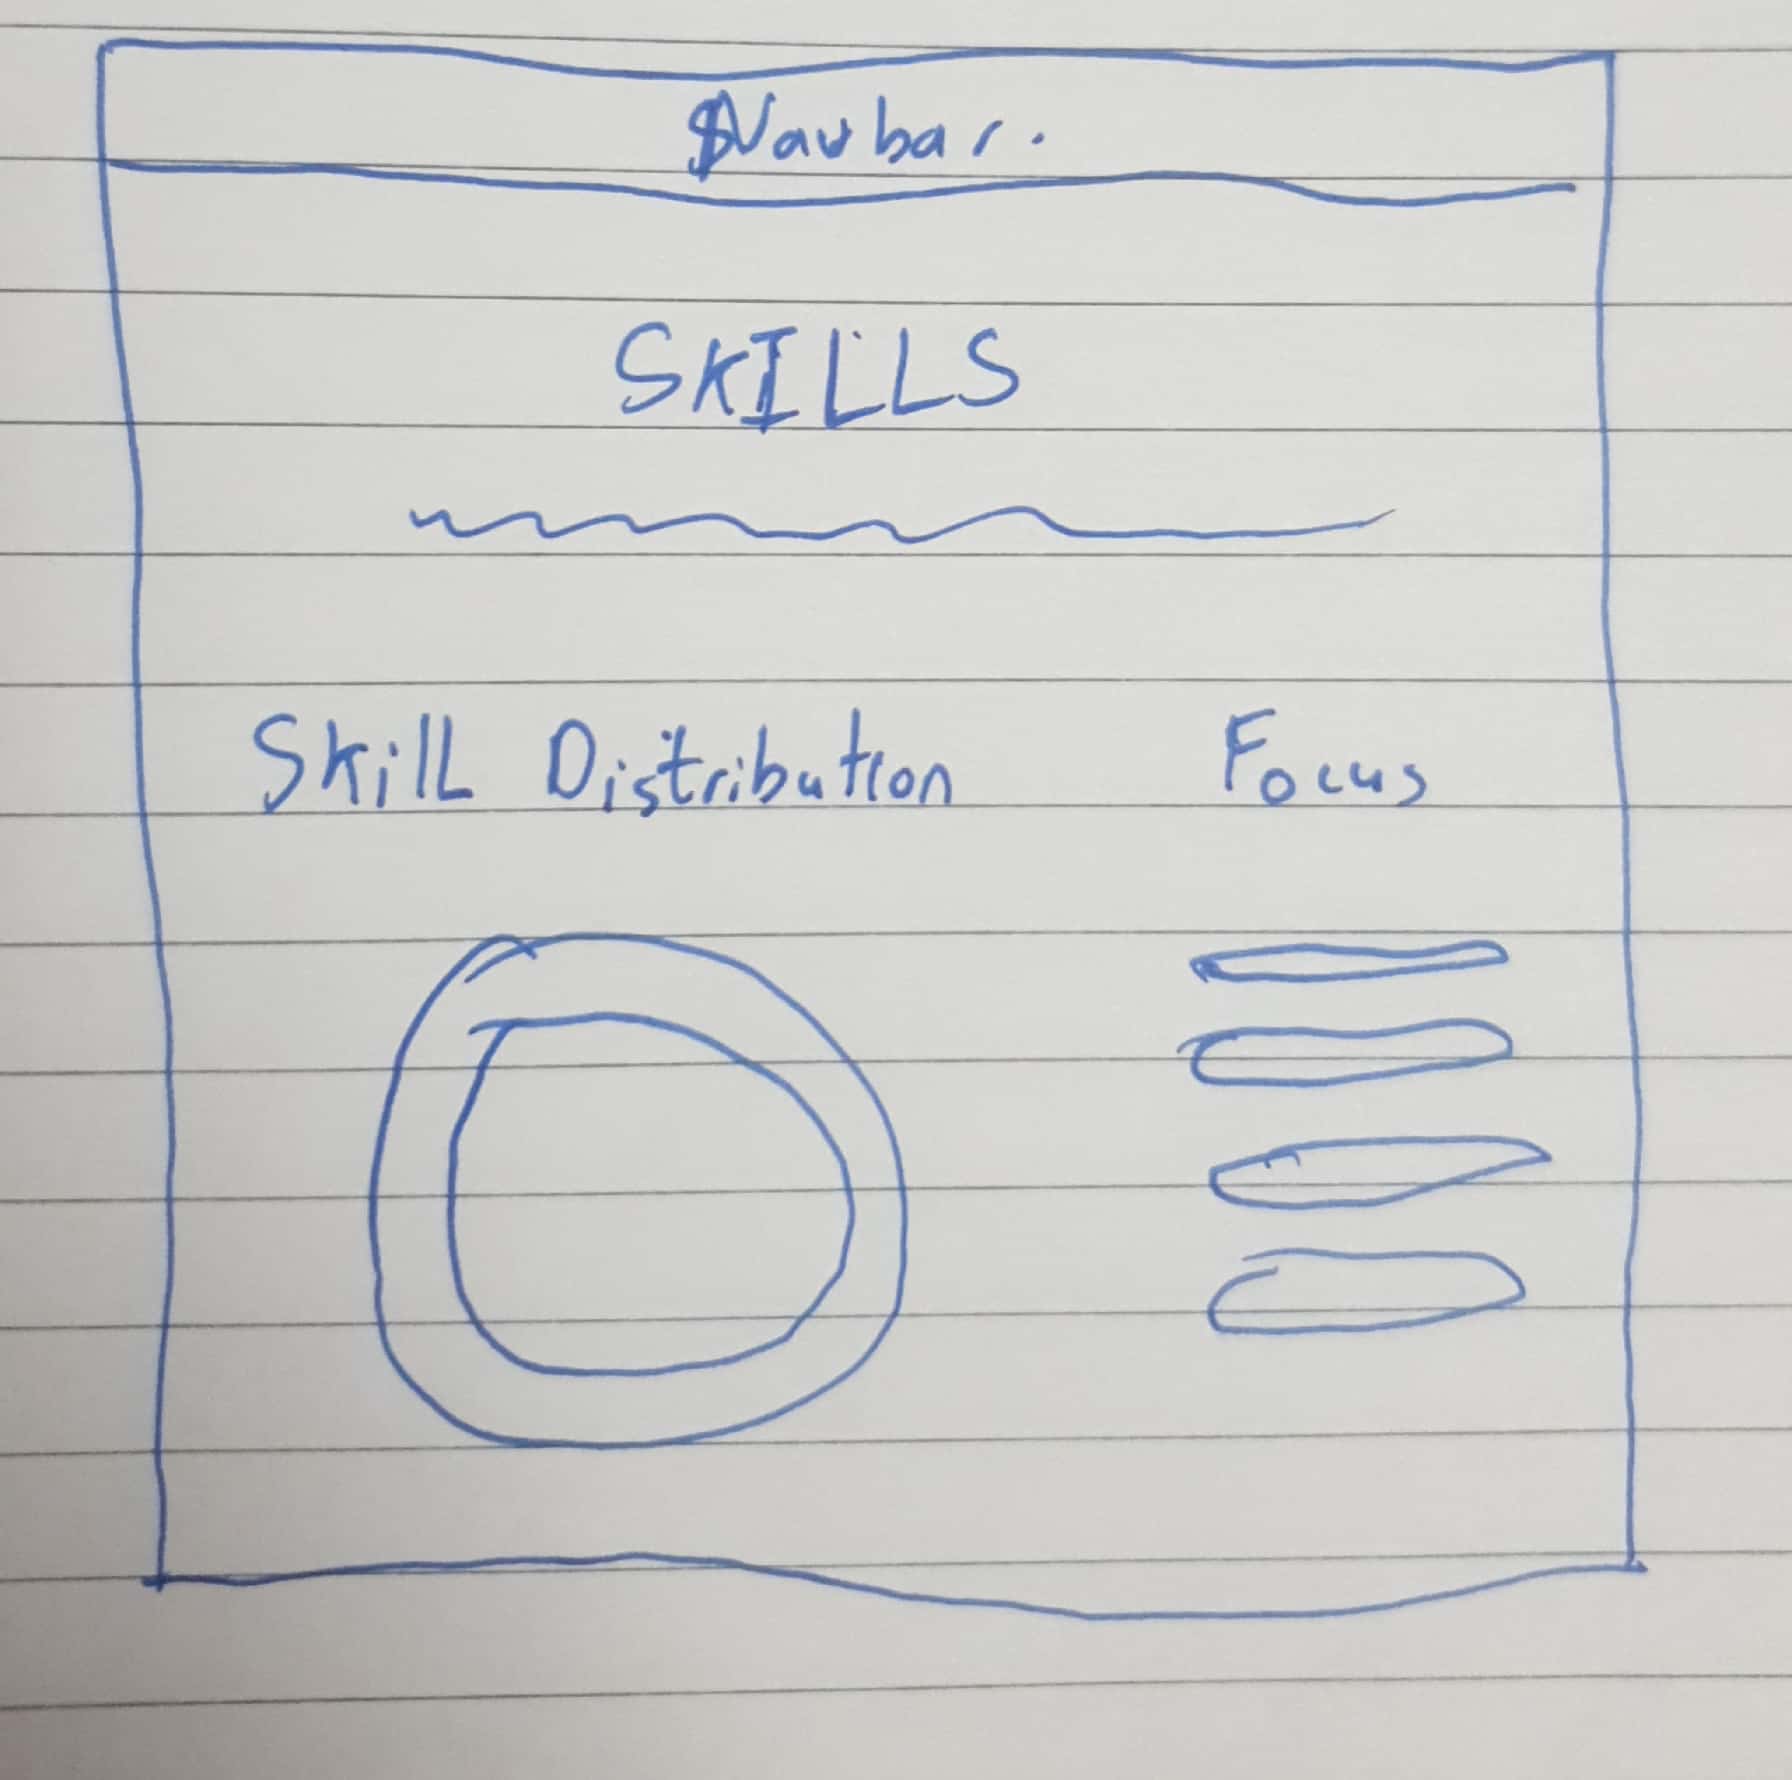 Navbar.
SKILLS
Skill Distribution Focus